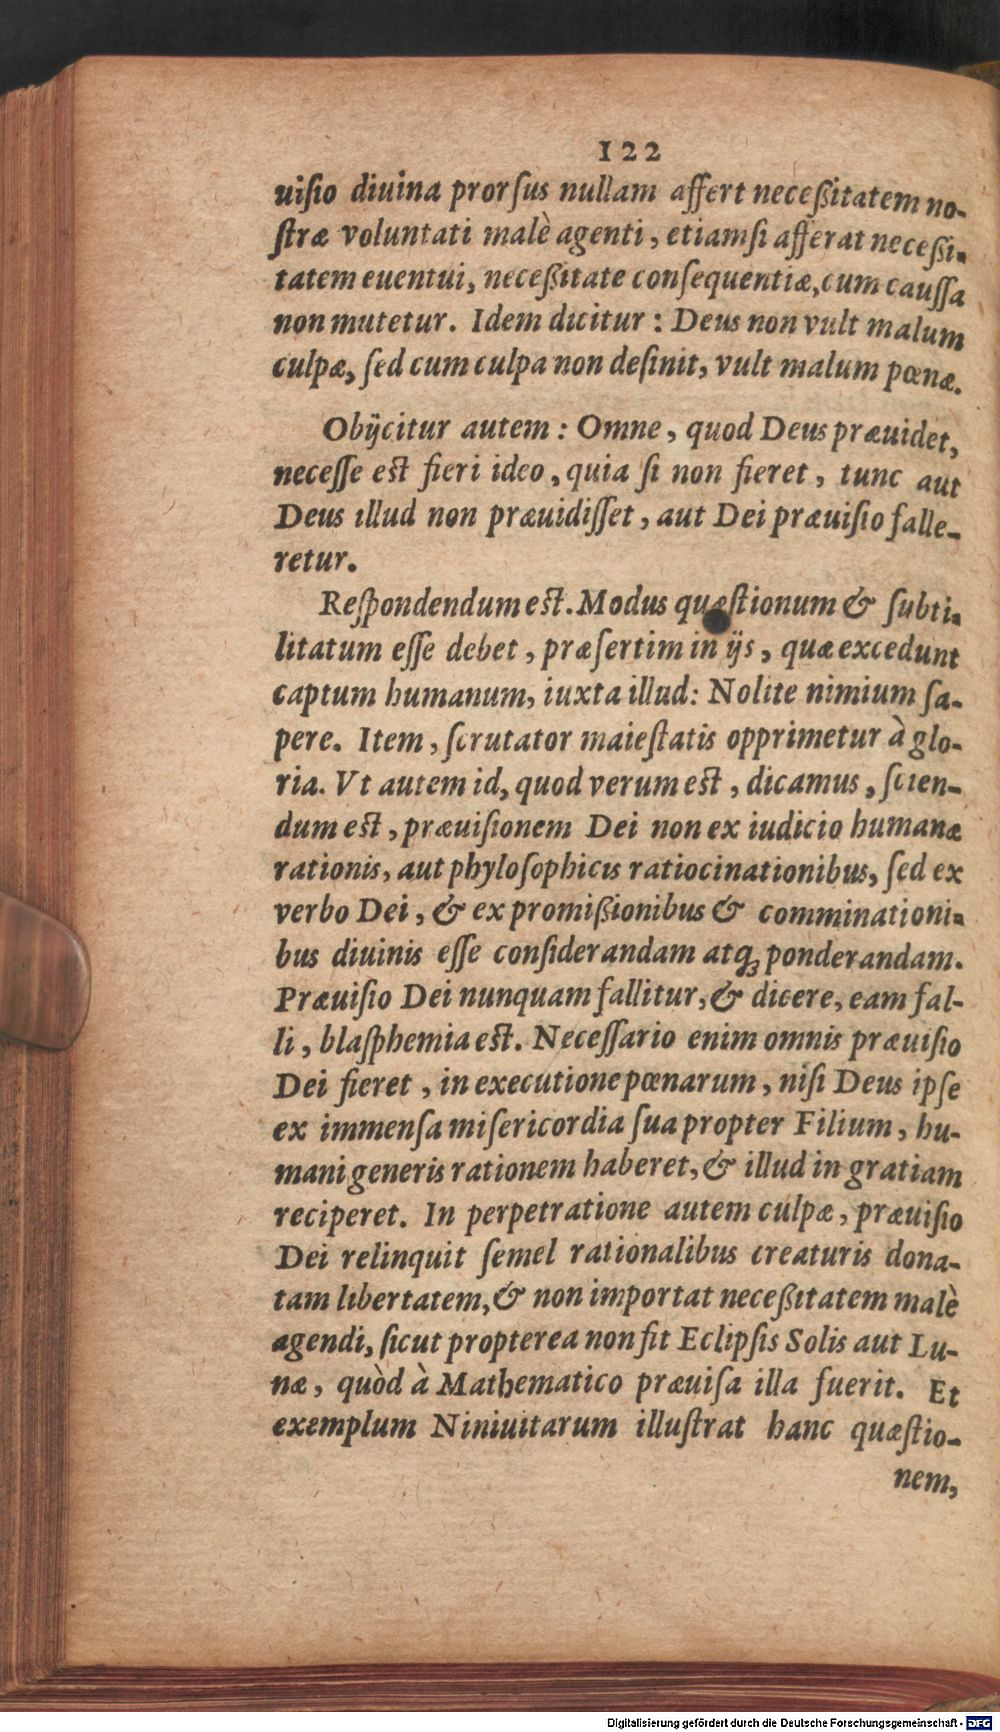 122
uiſio diuina prorſus nullam affert neceßitatem no-
ſtræ voluntati malè agenti, etiamſi afferat neceßi-
tatem euentui, neceßitate conſequentiæ, cum cauſſa
non mutetur. Idem dicitur: Deus non vult malum
culpæ, ſed cum culpa non deſinit, vult malum pœnæ.
Obijcitur autem: Omne, quod Deus præuidet,
neceſſe est fieri ideo, quia ſi non fieret, tunc aut
Deus illud non præuidiſſet, aut Dei præuiſio falle-
retur.
Reſpondendum est. Modus quæſtionum & ſubti-
litatum eſſe debet, præſertim in ijs, quæ excedunt
captum humanum, iuxta illud: Nolite nimium ſa-
pere. Item, ſcrutator maieſtatis opprimetur à glo-
ria. Vt autem id, quod verum est, dicamus, ſcien-
dum est, præuiſionem Dei non ex iudicio humanæ
rationis, aut phyloſophicis ratiocinationibus, ſed ex
verbo Dei, & ex promißionibus & comminationi-
bus diuinis eſſe conſiderandam atq; ponderandam.
Præuiſio Dei nunquam fallitur, & dicere, eam fal-
li, blaſphemia est. Neceſſario enim omnis præuiſio
Dei fieret, in executione pœnarum, niſi Deus ipſe
ex immenſa miſericordia ſua propter Filium, hu-
mani generis rationem haberet, & illud in gratiam
reciperet. In perpetratione autem culpæ, præuiſio
Dei relinquit ſemel rationalibus creaturis dona-
tam libertatem, & non importat neceßitatem malè
agendi, ſicut propterea non fit Eclipſis Solis aut Lu-
næ, quòd à Mathematico præuiſa illa fuerit. Et
exemplum Niniuitarum illuſtrat hanc quæſtio-
nem,
Digitalisierung gefördert durch die Deutsche Forschungsgemeinschaft - DFG